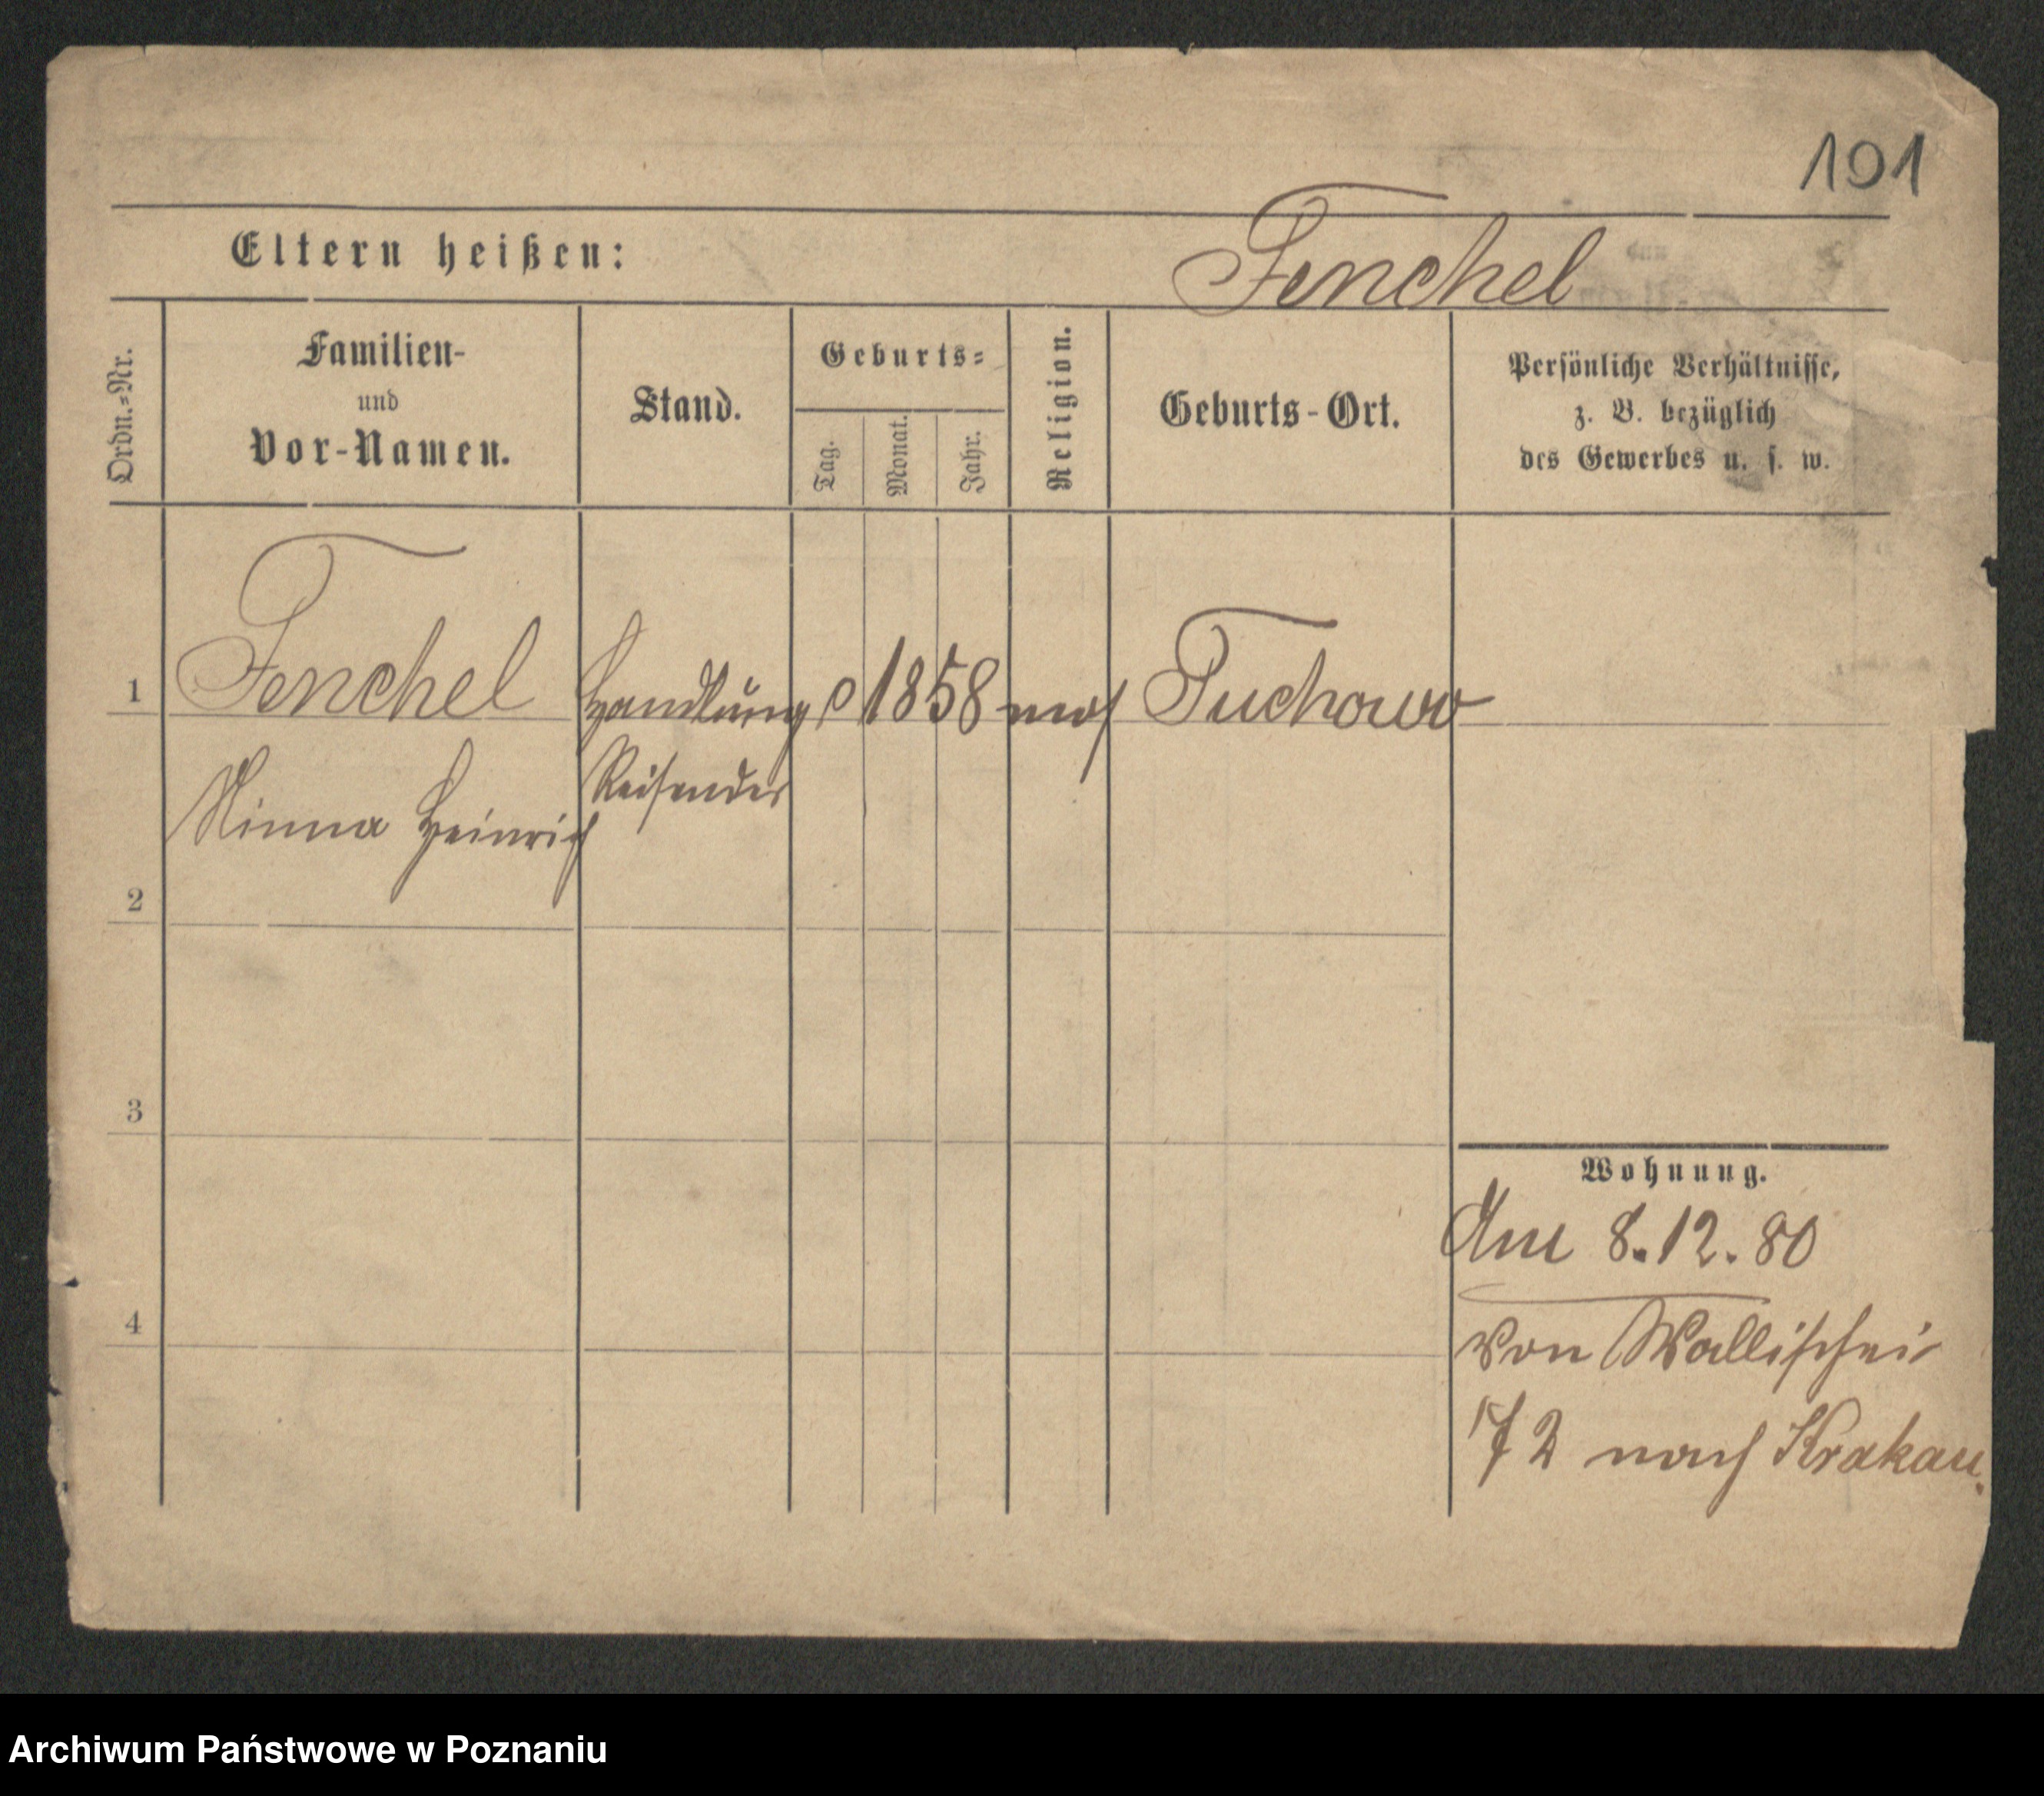 101
Eltern heißen:
Fenchel
Ordn.-Nr.
Familien-
und
Vor-Namen.
Stand.
Geburts-
Tag.
Monat.
Jahr.
Religion.
Geburts-Ort.
Persönliche Verhältnisse,
z. B. bezüglich
des Gewerbes u. s. w.
1
Fenchel
Handlungs
1858
mos
Tuchow
Reisender
Heinrich
2
3
Wohnung.
Am 8.12.80
4
von Wallischei
72 nach Krakau.
Archiwum Państwowe w Poznaniu